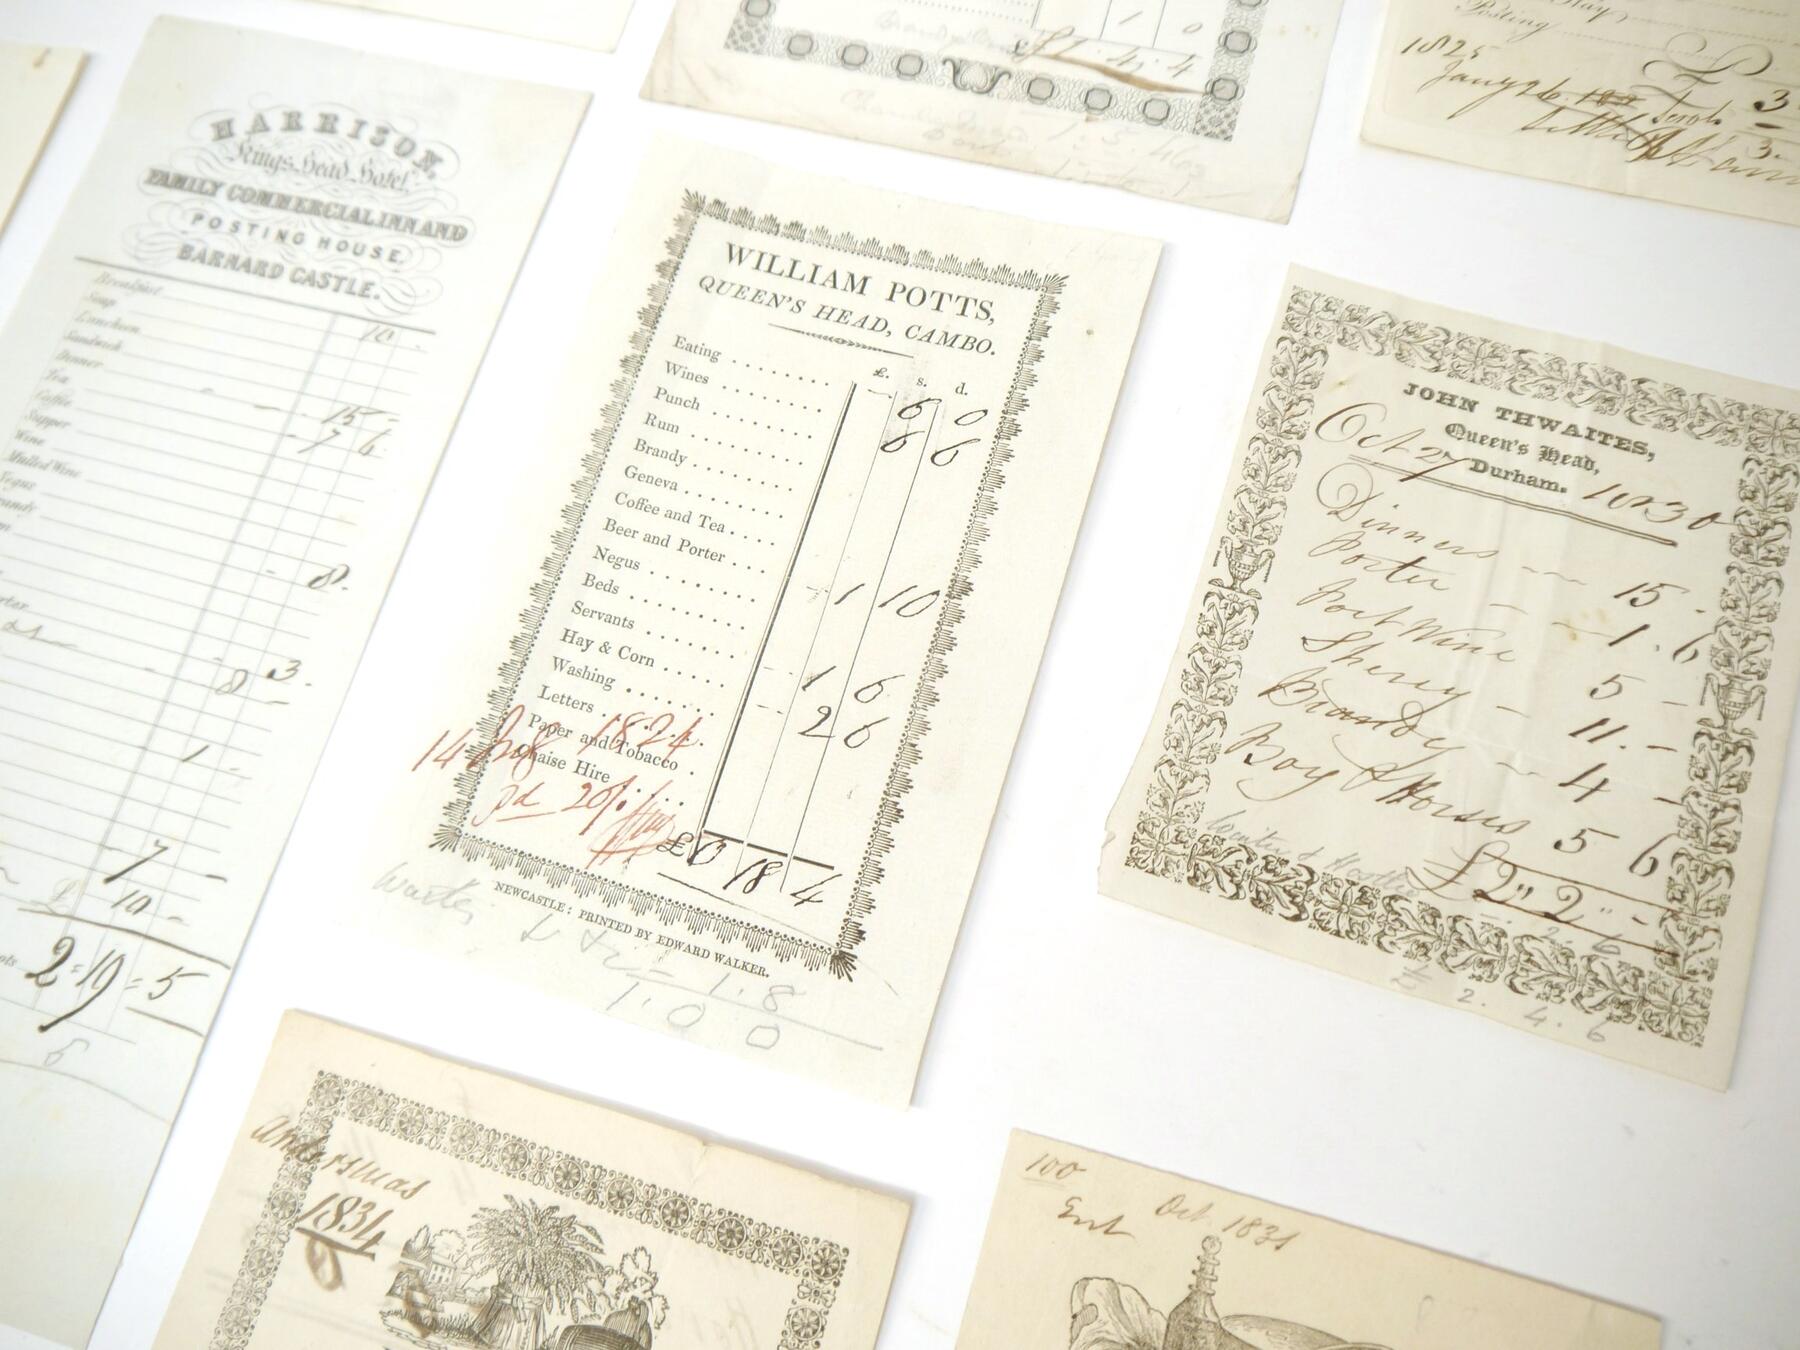 HARRISON,
Kings Head Hotel,
FAMILY COMMERCIAL INN AND
POSTING HOUSE,
BARNARD CASTLE.
Breakfast 10 -
Soup
Luncheon
Sandwich
Dinner 15 -
Tea 7 6
Coffee
Supper
Wine
Mulled Wine
Negus
8 -
3 -
8 -
1 -
7 -
£ 10 -
2 = 19 = 5
6
1 0
£1 . 4 . 4
1 . 5 .
WILLIAM POTTS,
QUEEN'S HEAD, CAMBO.
£. s. d.
Eating 6 0
Wines 6 6
Punch
Rum
Brandy
Geneva
Coffee and Tea
Beer and Porter 1 10
Negus
Beds
Servants 1 6
Hay & Corn 2 6
Washing
Letters
Paper and Tobacco
Chaise Hire
14 1824.
pd 20/.
£0 18 4
NEWCASTLE: PRINTED BY EDWARD WALKER.
Waiter 1 . 8
1 . 0 0
Posting
£
1825
Jany 26 3
3
JOHN THWAITES,
Queen's Head,
Durham.
Oct 27 1830
Dinners 15 -
Porter 1 . 6
Port Wine 5 -
Sherry 11 . -
Brandy 4 -
Boy & Horses 5 6
£2 " 2 " -
Waiter &
2 . 6
2 .
4 . 6
1834
100
Oct. 1831